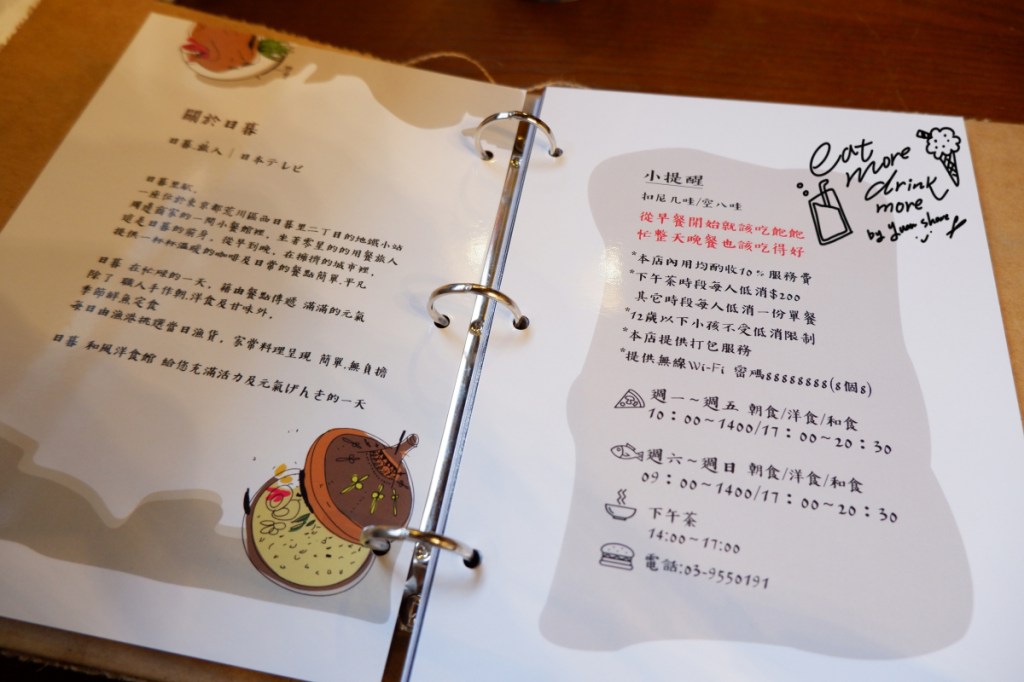 關於日暮
日暮.旅人|日本テレビ
日暮里駅,
一座位於東京都荒川區西日暮里二丁目的地鐵小站
周邊商家的一間小餐館裡,坐著零星的的用餐旅人
從是日暮的前身。從早到晚,在擁擠的城市裡,
提供一杯杯溫暖的咖啡及日常的餐點簡單.平凡
日暮 在忙碌的一天,藉由餐點傳遞 滿滿的元氣
除了 職人手作朝.洋食及甘味外,
季節鮮魚定食
每日由漁港挑選當日漁貨,家常料理呈現 簡單.無負擔
日暮 和風洋食館 給您充滿活力及元氣げんき的一天
eat
more
drink
more
by Yum share
小提醒
扣尼几哇/空八哇
從早餐開始就該吃飽飽
忙整天晚餐也該吃得好
*本店內用均酌收10%服務費
*下午茶時段每人低消$200
其它時段每人低消一份單餐
*12歲以下小孩不受低消限制
*本店提供打包服務
*提供無線Wi-Fi 密碼88888888(8個8)
週一~週五 朝食/洋食/和食
10:00~1400/17:00~20:30
週六~週日 朝食/洋食/和食
09:00~1400/17:00~20:30
下午茶
14:00~17:00
電話:03-9550191